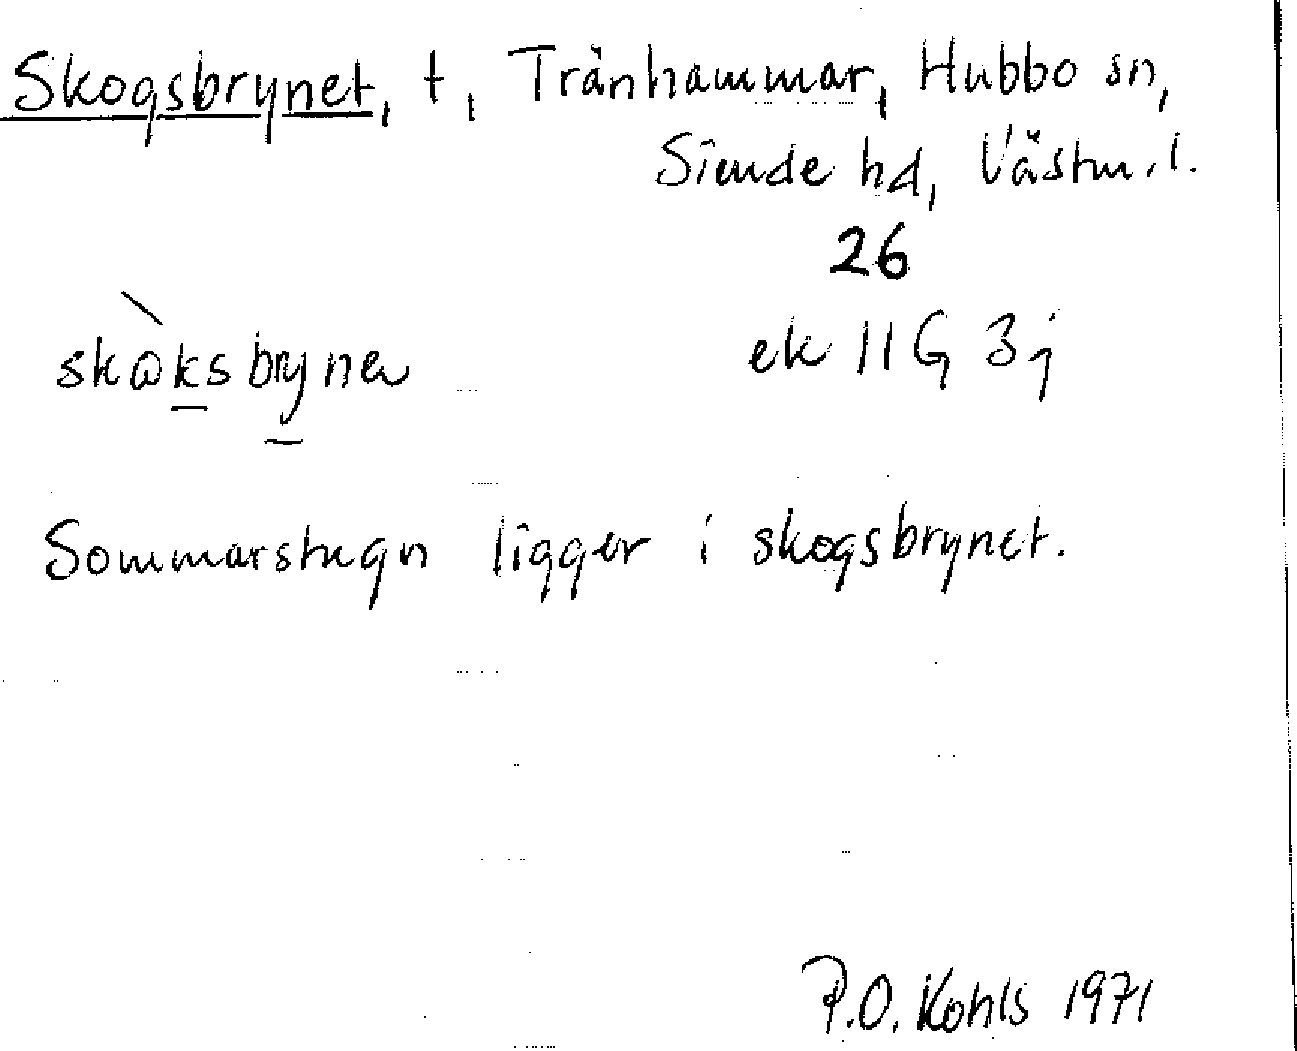 Skogsbrynet, t, Trånhammar, Hubbo sn,
Siende hd, Västm. l.
26
skòksbrynə ek 11G 3j
Sommarstugn ligger i skogsbrynet.
P.O. Kohls 1971